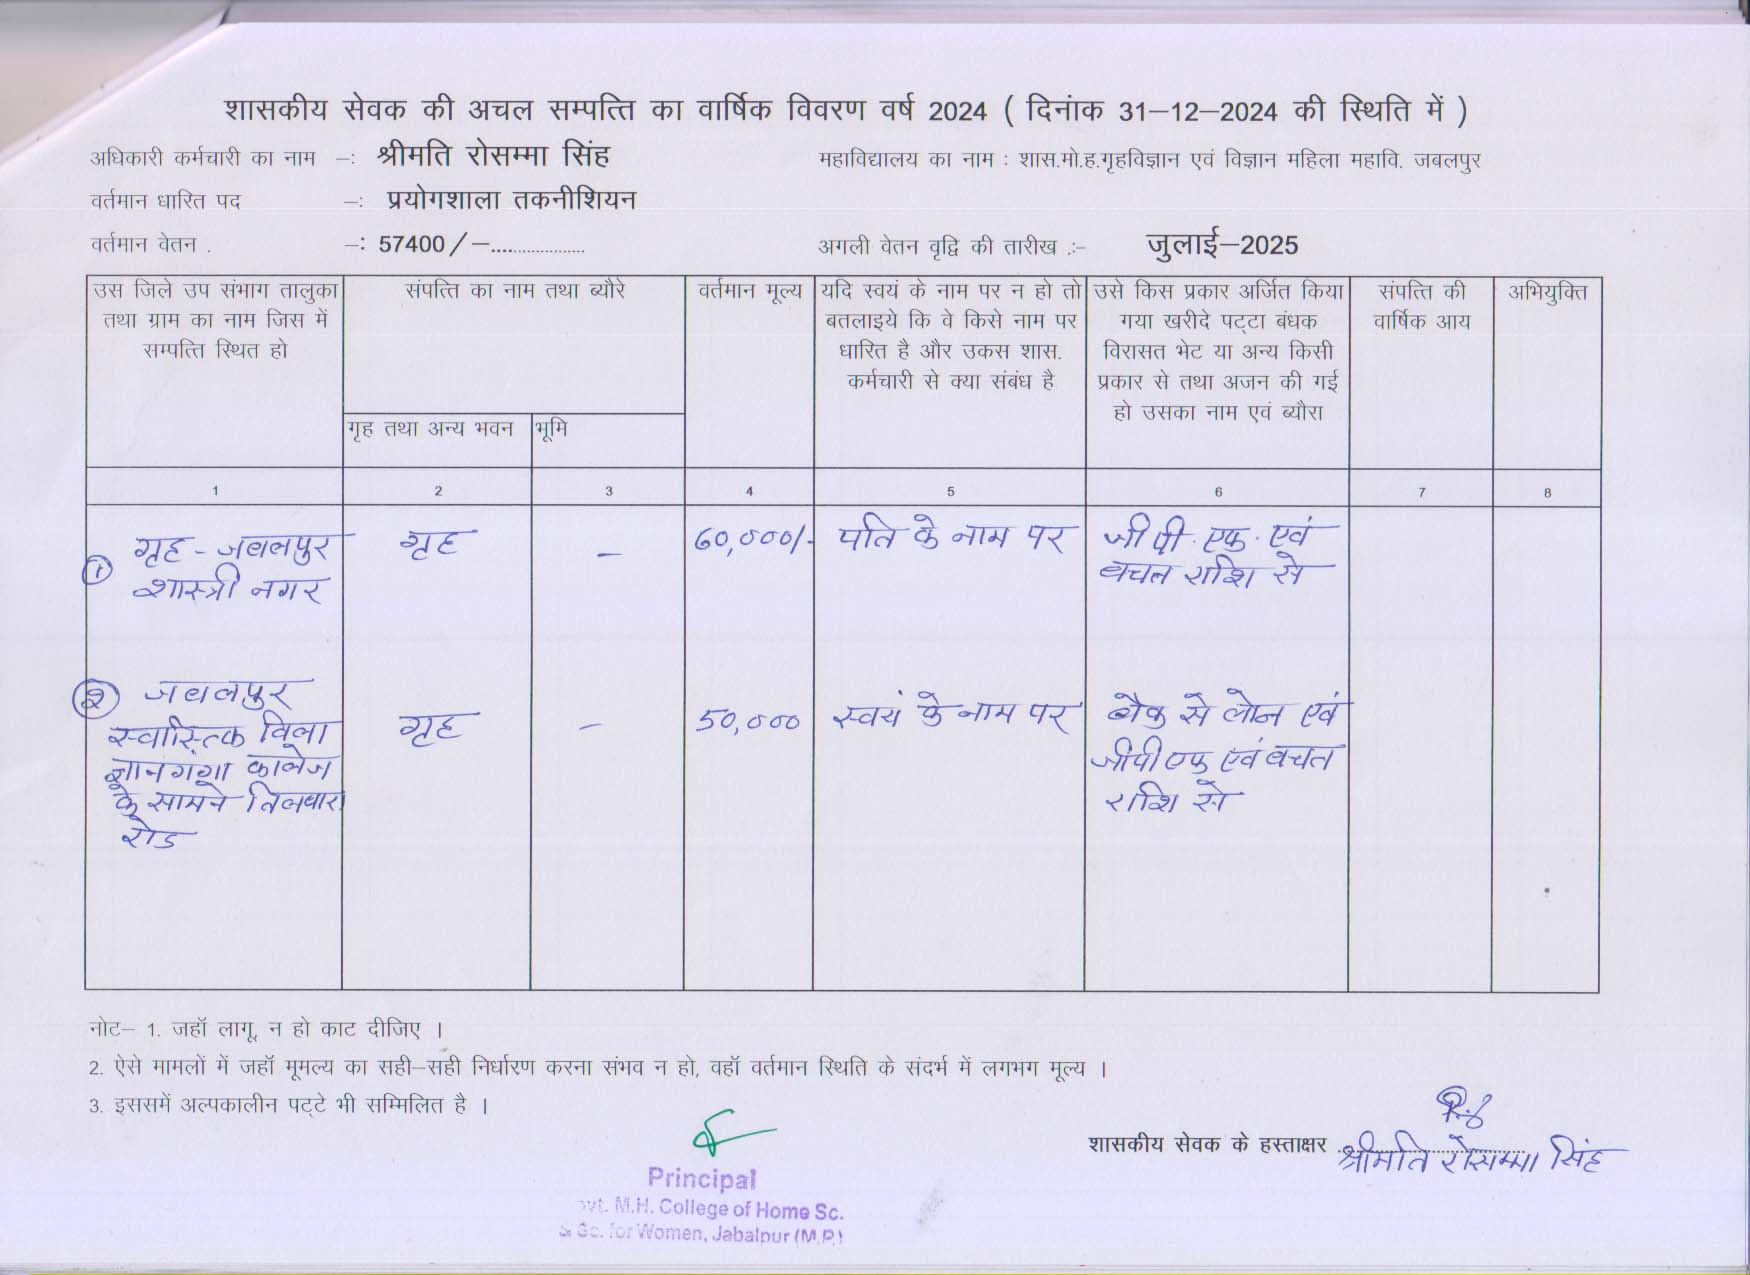 शासकीय सेवक की अचल सम्पत्ति का वार्षिक विवरण वर्ष 2024 ( दिनांक 31–12–2024 की स्थिति में )
अधिकारी कर्मचारी का नाम –: श्रीमति रोसम्मा सिंह महाविद्यालय का नाम : शास.मो.ह.गृहविज्ञान एवं विज्ञान महिला महावि. जबलपुर
वर्तमान धारित पद –: प्रयोगशाला तकनीशियन
वर्तमान वेतन . –: 57400 / –.................... अगली वेतन वृद्वि की तारीख :– जुलाई–2025
उस जिले उप संभाग तालुका
तथा ग्राम का नाम जिस में
सम्पत्ति स्थित हो
संपत्ति का नाम तथा ब्यौरे
गृह तथा अन्य भवन
भूमि
वर्तमान मूल्य
यदि स्वयं के नाम पर न हो तो
बतलाइये कि वे किसे नाम पर
धारित है और उकस शास.
कर्मचारी से क्या संबंध है
उसे किस प्रकार अर्जित किया
गया खरीदे पट्टा बंधक
विरासत भेट या अन्य किसी
प्रकार से तथा अजन की गई
हो उसका नाम एवं ब्यौरा
संपत्ति की
वार्षिक आय
अभियुक्ति
1 2 3 4 5 6 7 8
① गृह - जबलपुर
शास्त्री नगर
गृह
–
60,000/-
पति के नाम पर
जी पी. एफ. एवं
बचत राशि से
② जबलपुर
स्वास्तिक विला
ज्ञानगंगा कालेज
के सामने तिलवारा
रोड
गृह
–
50,000
स्वयं के नाम पर
बैंक से लोन एवं
जीपीएफ एवं बचत
राशि से
नोट– 1. जहॉ लागू, न हो काट दीजिए ।
2. ऐसे मामलों में जहॉ मूमल्य का सही–सही निर्धारण करना संभव न हो, वहॉ वर्तमान स्थिति के संदर्भ में लगभग मूल्य ।
3. इससमें अल्पकालीन पट्टे भी सम्मिलित है ।
शासकीय सेवक के हस्ताक्षर श्रीमति रोसम्मा सिंह
Principal
ovt. M.H. College of Home Sc.
& Sc. for Women, Jabalpur (M.P.)